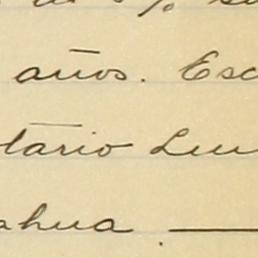 años. Esc
tario Lui
ahua. —